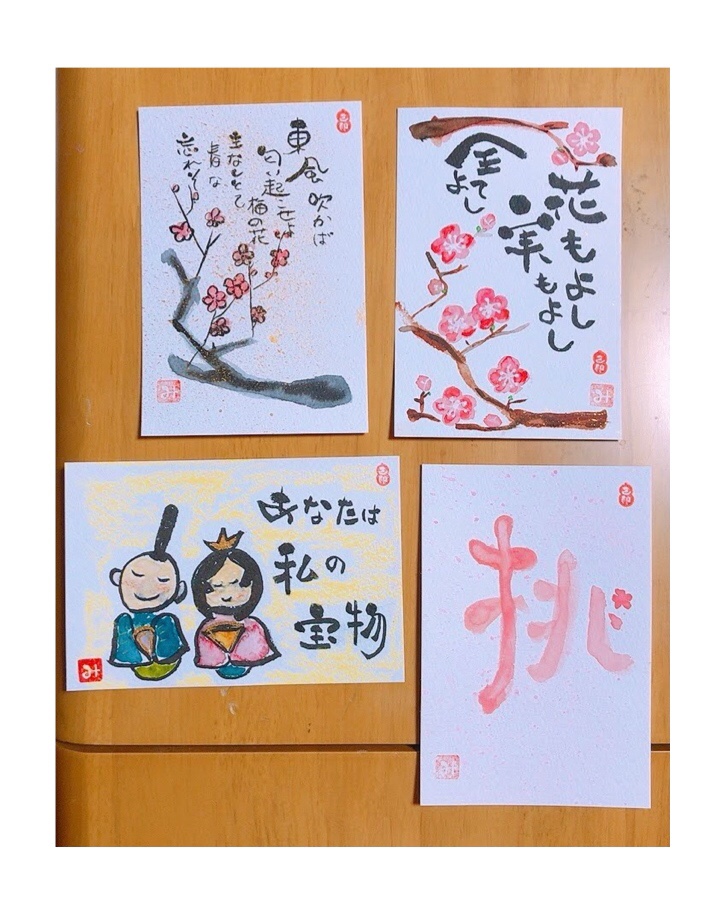 東風
吹かば
匂い起こせよ
梅の花
主なしとて
春な
忘れそ
み
花もよし
実もよし
全てよし
み
あなたは
私の
宝物
み
挑
み